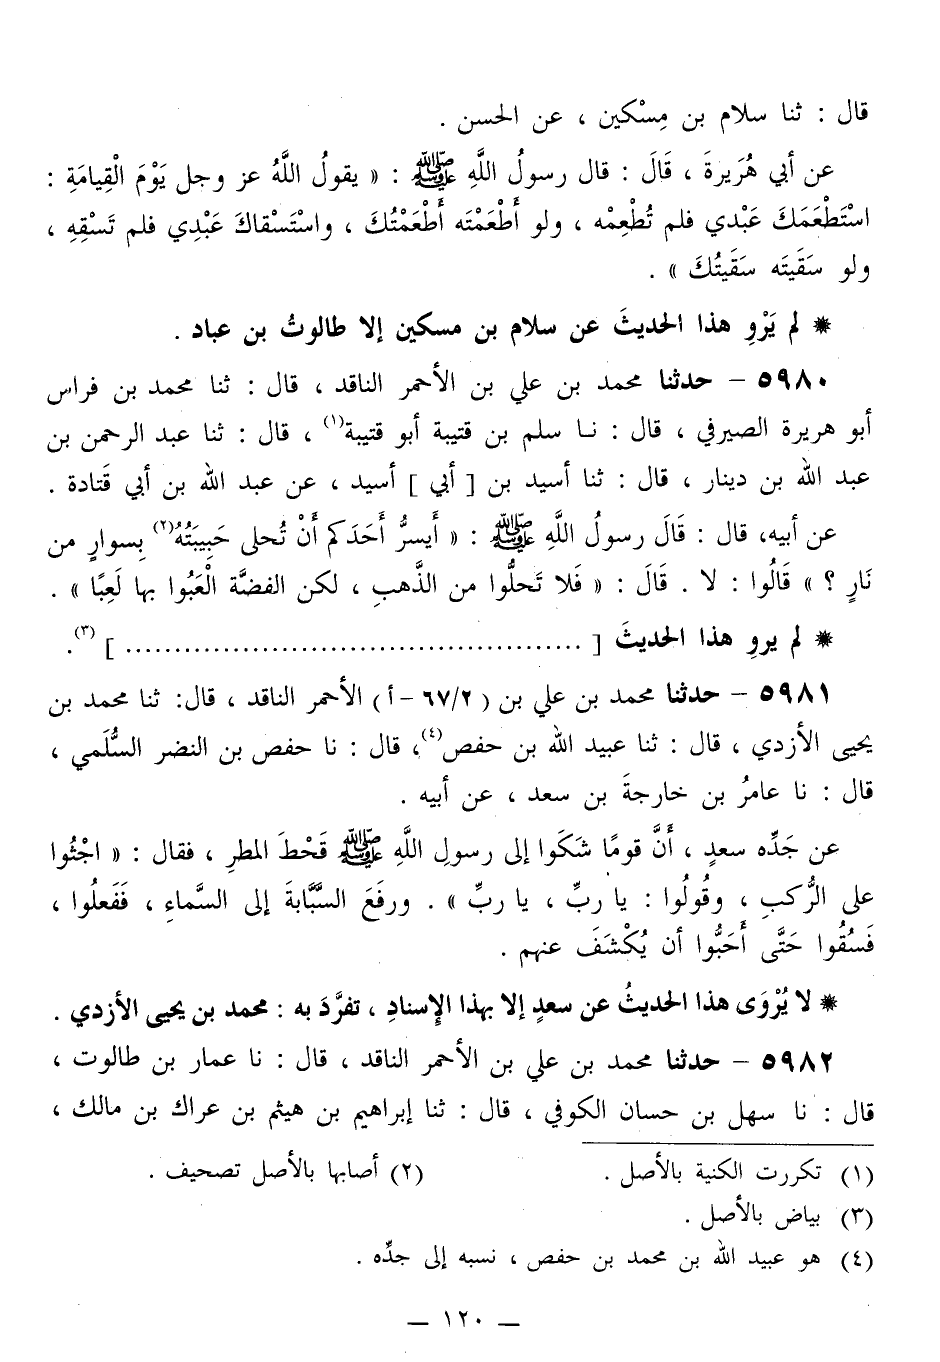 قال : ثنا سلام بن مِسْكين ، عن الحسن .
عن أبي هُرَيرةَ ، قَالَ : قال رسولُ اللَّهِ ﷺ : « يقولُ اللَّهُ عز وجل يَوْمَ الْقِيامَةِ :
اسْتَطْعَمَكَ عَبْدي فلم تُطْعِمْه ، ولو أَطْعَمْتَه أَطْعَمْتُكَ ، واسْتَسْقاكَ عَبْدِي فلم تَسْقِهِ ،
ولو سَقَيتَه سَقَيتُكَ » .
* لم يَرْوِ هذا الحديثَ عن سلام بن مسكين إلا طالوتُ بن عباد .
٥٩٨٠ – حدثنا محمد بن علي بن الأحمر الناقد ، قال : ثنا محمد بن فراس
أبو هريرة الصيرفي ، قال : نا سلم بن قتيبة أبو قتيبة(١) ، قال : ثنا عبد الرحمن بن
عبد الله بن دينار ، قال : ثنا أسيد بن [ أبي ] أسيد ، عن عبد الله بن أبي قَتادة .
عن أبيه، قال : قَالَ رسولُ اللَّهِ ﷺ : « أَيسرُّ أَحَدَكم أَنْ تُحلى حَبِيبَتُهُ(٢) بِسوارٍ من
نَارٍ ؟ » قَالُوا : لا . قَالَ : « فَلا تَحلُّوا من الذَّهبِ ، لكن الفضَّة الْعَبُوا بها لَعِبًا » .
* لم يروِ هذا الحديثَ [ ............................................... ] (٣).
٥٩٨١ – حدثنا محمد بن علي بن ( ٢/٦٧ – أ ) الأحمر الناقد ، قال: ثنا محمد بن
يحيى الأزدي ، قال : ثنا عبيد الله بن حفص(٤)، قال : نا حفص بن النضر السُّلَمي ،
قال : نا عامرُ بن خارجةَ بن سعد ، عن أبيه .
عن جَدِّه سعدٍ ، أَنَّ قومًا شَكَوا إلى رسولِ اللَّهِ ﷺ قَحْطَ المطرِ ، فقال : « اجْثُوا
على الرُّكبِ ، وقُولُوا : يا ربِّ ، يا ربِّ » . ورفَعَ السَّبَّابةَ إلى السَّماءِ ، فَفَعلُوا ،
فَسُقُوا حَتَّى أَحَبُّوا أن يُكْشَفَ عنهم .
* لا يُرْوَى هذا الحديثُ عن سعدٍ إلا بهذا الإِسنادِ ، تفرَّدَ به : محمد بن يحيى الأزدي .
٥٩٨٢ – حدثنا محمد بن علي بن الأحمر الناقد ، قال : نا عمار بن طالوت ،
قال : نا سهل بن حسان الكوفي ، قال : ثنا إبراهيم بن هيثم بن عراك بن مالك ،
(١) تكررت الكنية بالأصل . (٢) أصابها بالأصل تصحيف .
(٣) بياض بالأصل .
(٤) هو عبيد الله بن محمد بن حفص ، نسبه إلى جدِّه .
— ١٢٠ —